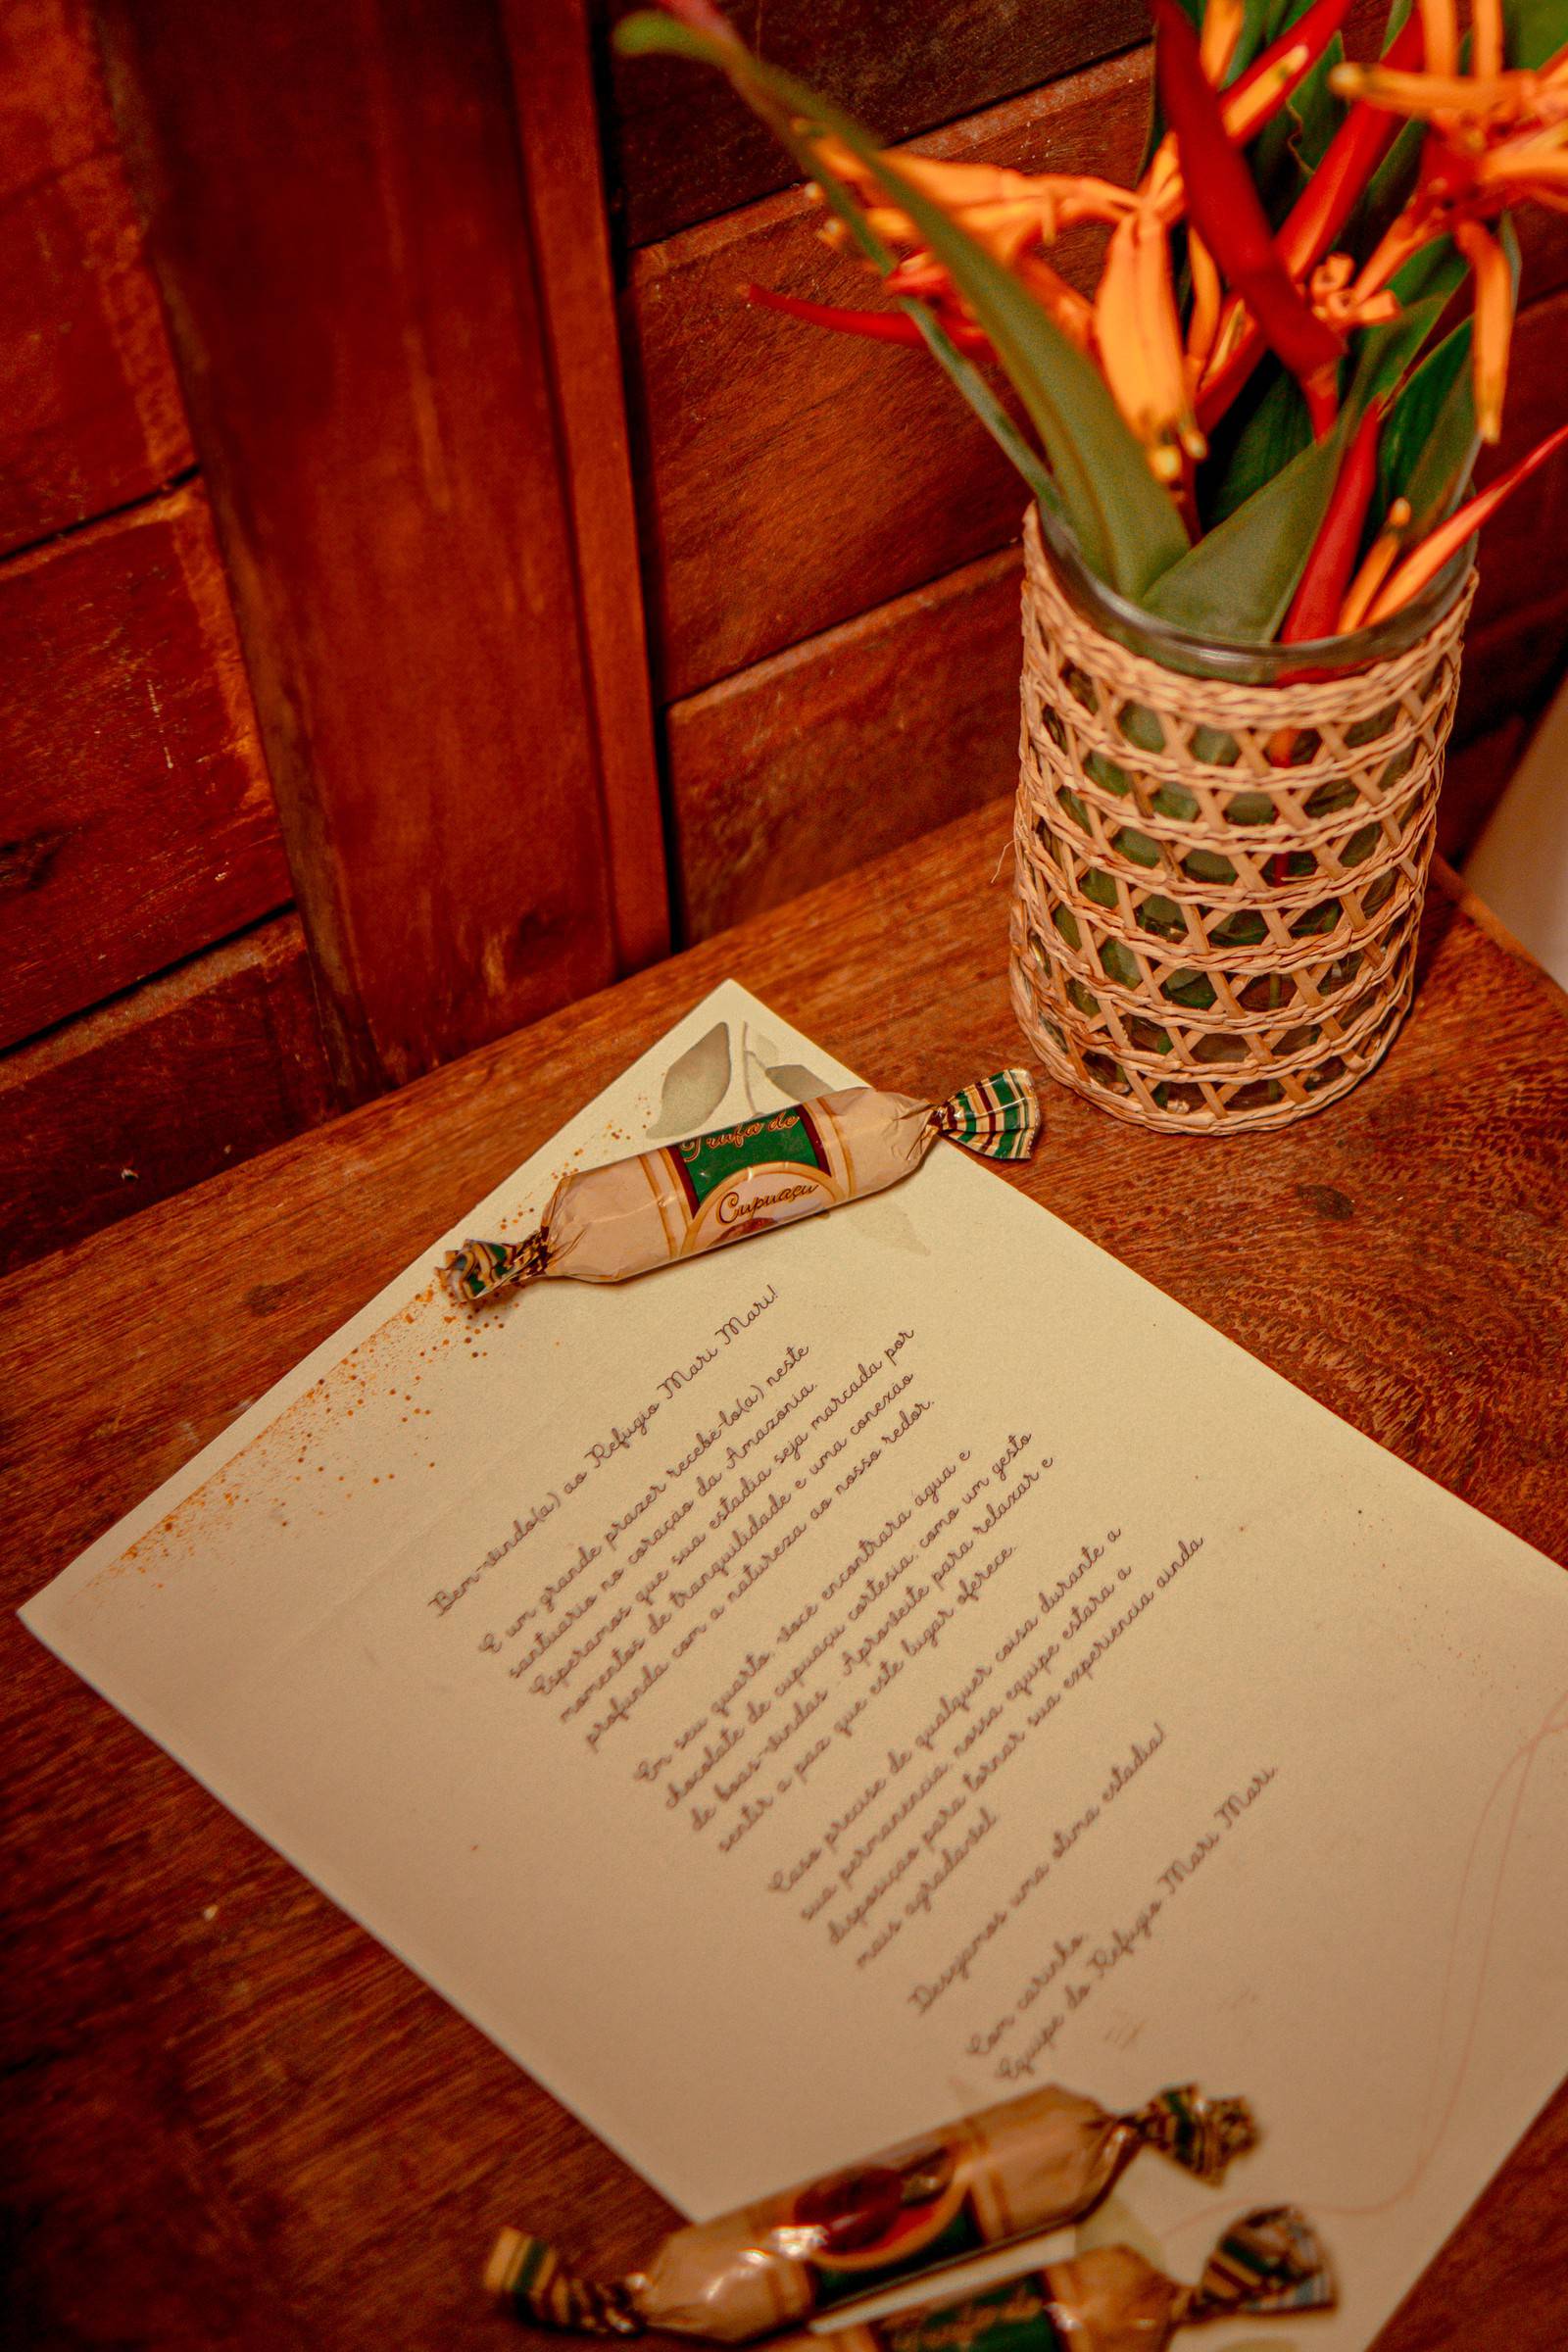 Trufa de
Cupuaçu
Bem-vindo(a) ao Refugio Mari Mari!
É um grande prazer recebê-lo(a) neste
santuario no coração da Amazonia.
Esperamos que sua estadia seja marcada por
momentos de tranquilidade e uma conexão
profunda com a natureza ao nosso redor.
Em seu quarto, voce encontrara agua e
chocolate de cupuaçu cortesia, como um gesto
de boas-vindas. Aproveite para relaxar e
sentir a paz que este lugar oferece.
Caso precise de qualquer coisa durante a
sua permanencia, nossa equipe estara a
disposição para tornar sua experiencia ainda
mais agradavel.
Desejamos uma otima estadia!
Com carinho,
Equipe do Refugio Mari Mari